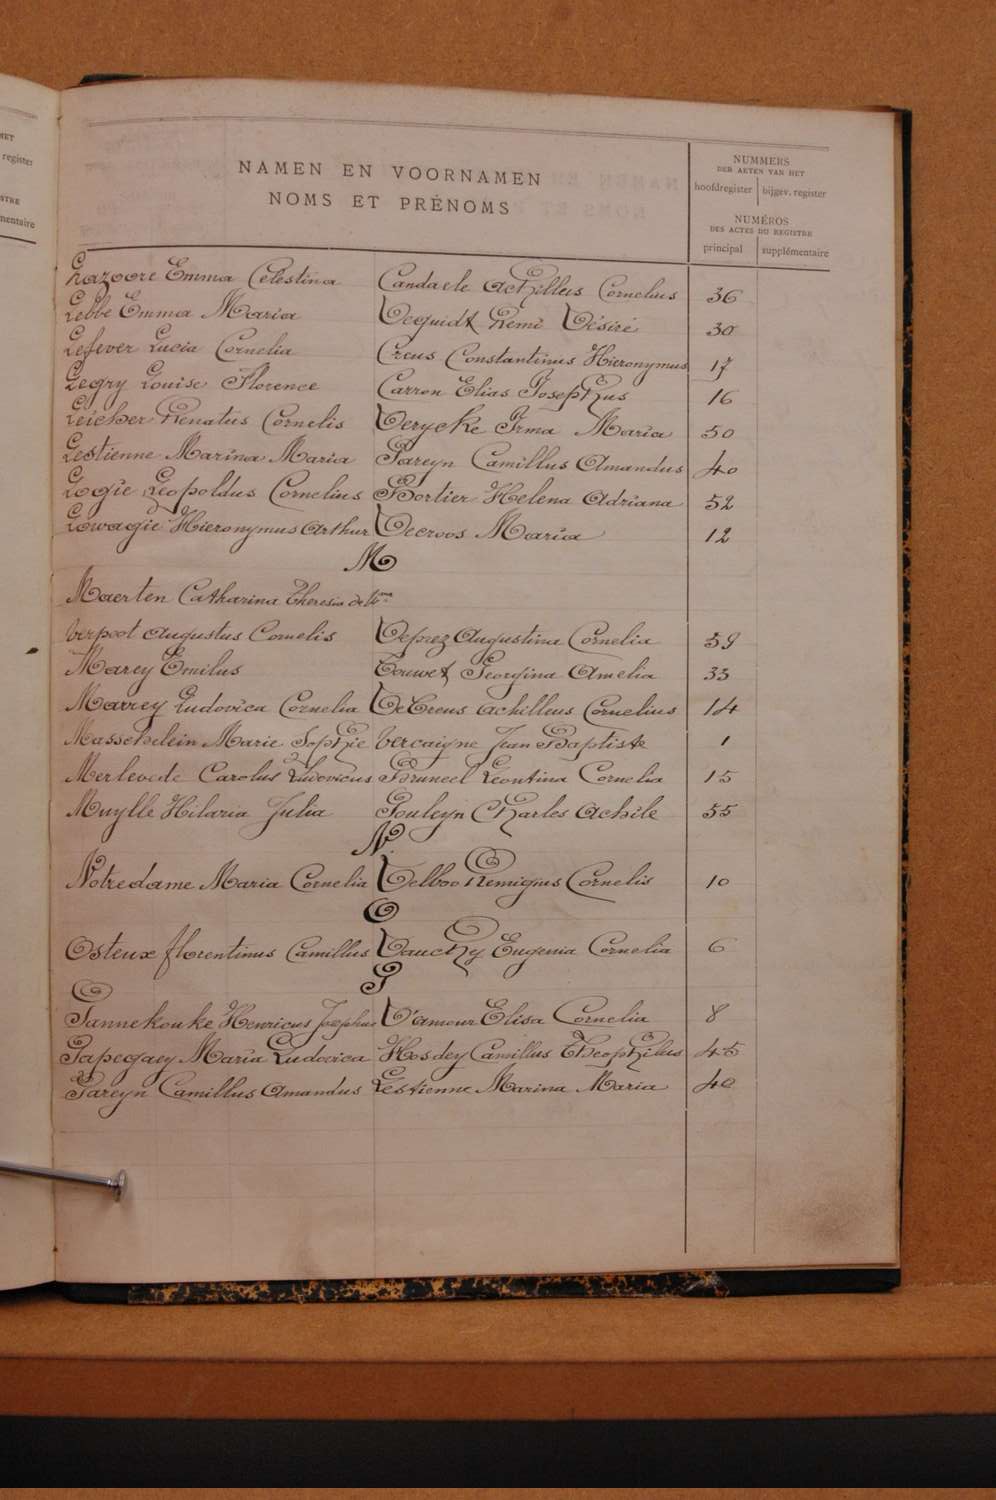 NAMEN EN VOORNAMEN
NOMS ET PRÉNOMS
NUMMERS
DER AKTEN VAN HET
hoofdregister bijgev. register
NUMÉROS
DES ACTES DU REGISTRE
principal supplémentaire
register
mentaire
Lazoore Emma Celestina Candaele Achilleus Cornelius 36
Lebbe Emma Maria Dequidt Remi Désiré 30
Lefever Lucia Cornelia Creus Constantinus Hieronymus 17
Legry Louise Florence Carron Elias Josephus 16
Leicher Renatus Cornelis Derycke Irma Maria 50
Lestienne Marina Maria Pareyn Camillus Amandus 40
Logie Leopoldus Cornelius Bortier Helena Adriana 52
Lowagie Hieronymus Arthur Decroos Maria 12
M
Maerten Catharina Theresia de Wwe
Verpoot Augustus Cornelis Deprez Augustina Cornelia 59
Marey Emilus Touwet Georgina Amelia 33
Marrey Ludovica Cornelia DeCreus Achilleus Cornelius 14
Masschelein Marie Sophie Vercaigne Jean Baptiste 1
Merlevede Carolus Ludovicus Bruneel Leontina Cornelia 15
Muylle Hilaria Julia Pouleyn Charles Achile 55
N
Notredame Maria Cornelia Delboo Remigius Cornelis 10
O
Osteux Florentinus Camillus Dauchy Eugenia Cornelia 6
P
Pannekouke Henricus Josephus D'amour Elisa Cornelia 8
Papegaey Maria Ludovica Hosdey Camillus Theophilus 45
Pareyn Camillus Amandus Lestienne Marina Maria 40